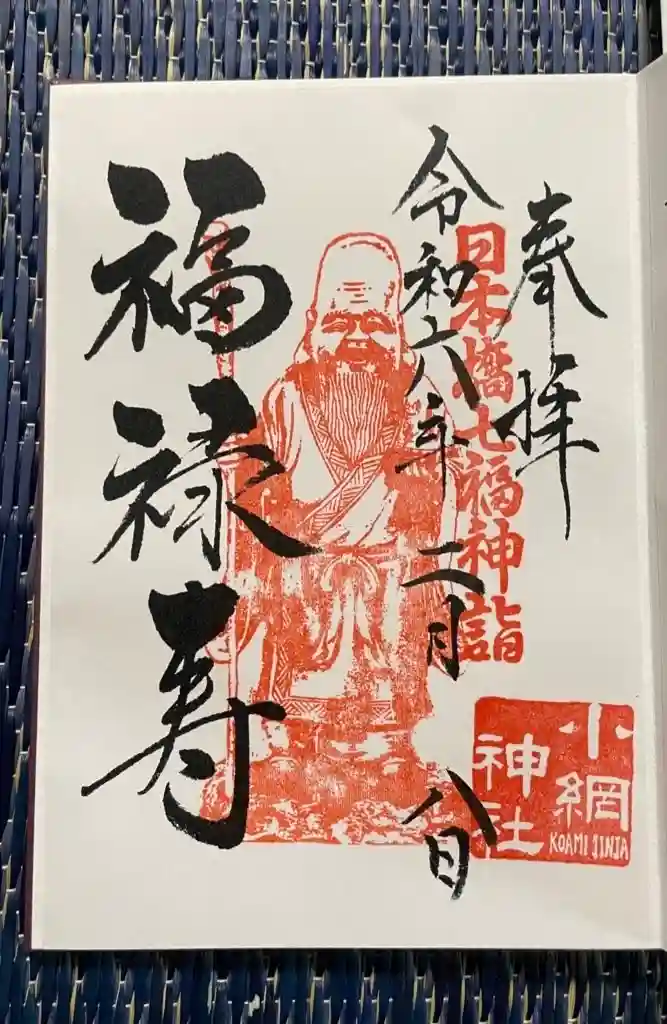 奉拝
日本橋七福神詣
令和六年二月八日
福禄寿
小網
神社
KOAMI JINJA